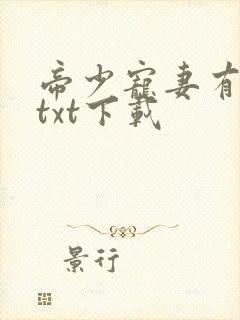 帝少寵妻有
txt下載
景行